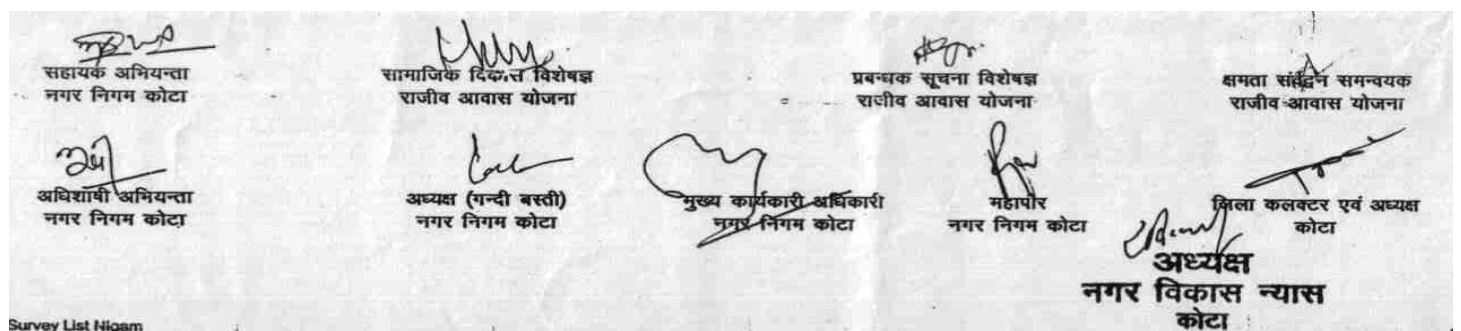 सहायक अभियन्ता
नगर निगम कोटा
सामाजिक विशेषज्ञ
राजीव आवास योजना
प्रबन्धक सूचना विशेषज्ञ
राजीव आवास योजना
क्षमता संर्वद्धन समन्वयक
राजीव आवास योजना
अधिशाषी अभियन्ता
नगर निगम कोटा
अध्यक्ष (गन्दी बस्ती)
नगर निगम कोटा
मुख्य कार्यकारी अधिकारी
नगर निगम कोटा
महापौर
नगर निगम कोटा
जिला कलक्टर एवं अध्यक्ष
कोटा
अध्यक्ष
नगर विकास न्यास
कोटा
Survey List Nigam